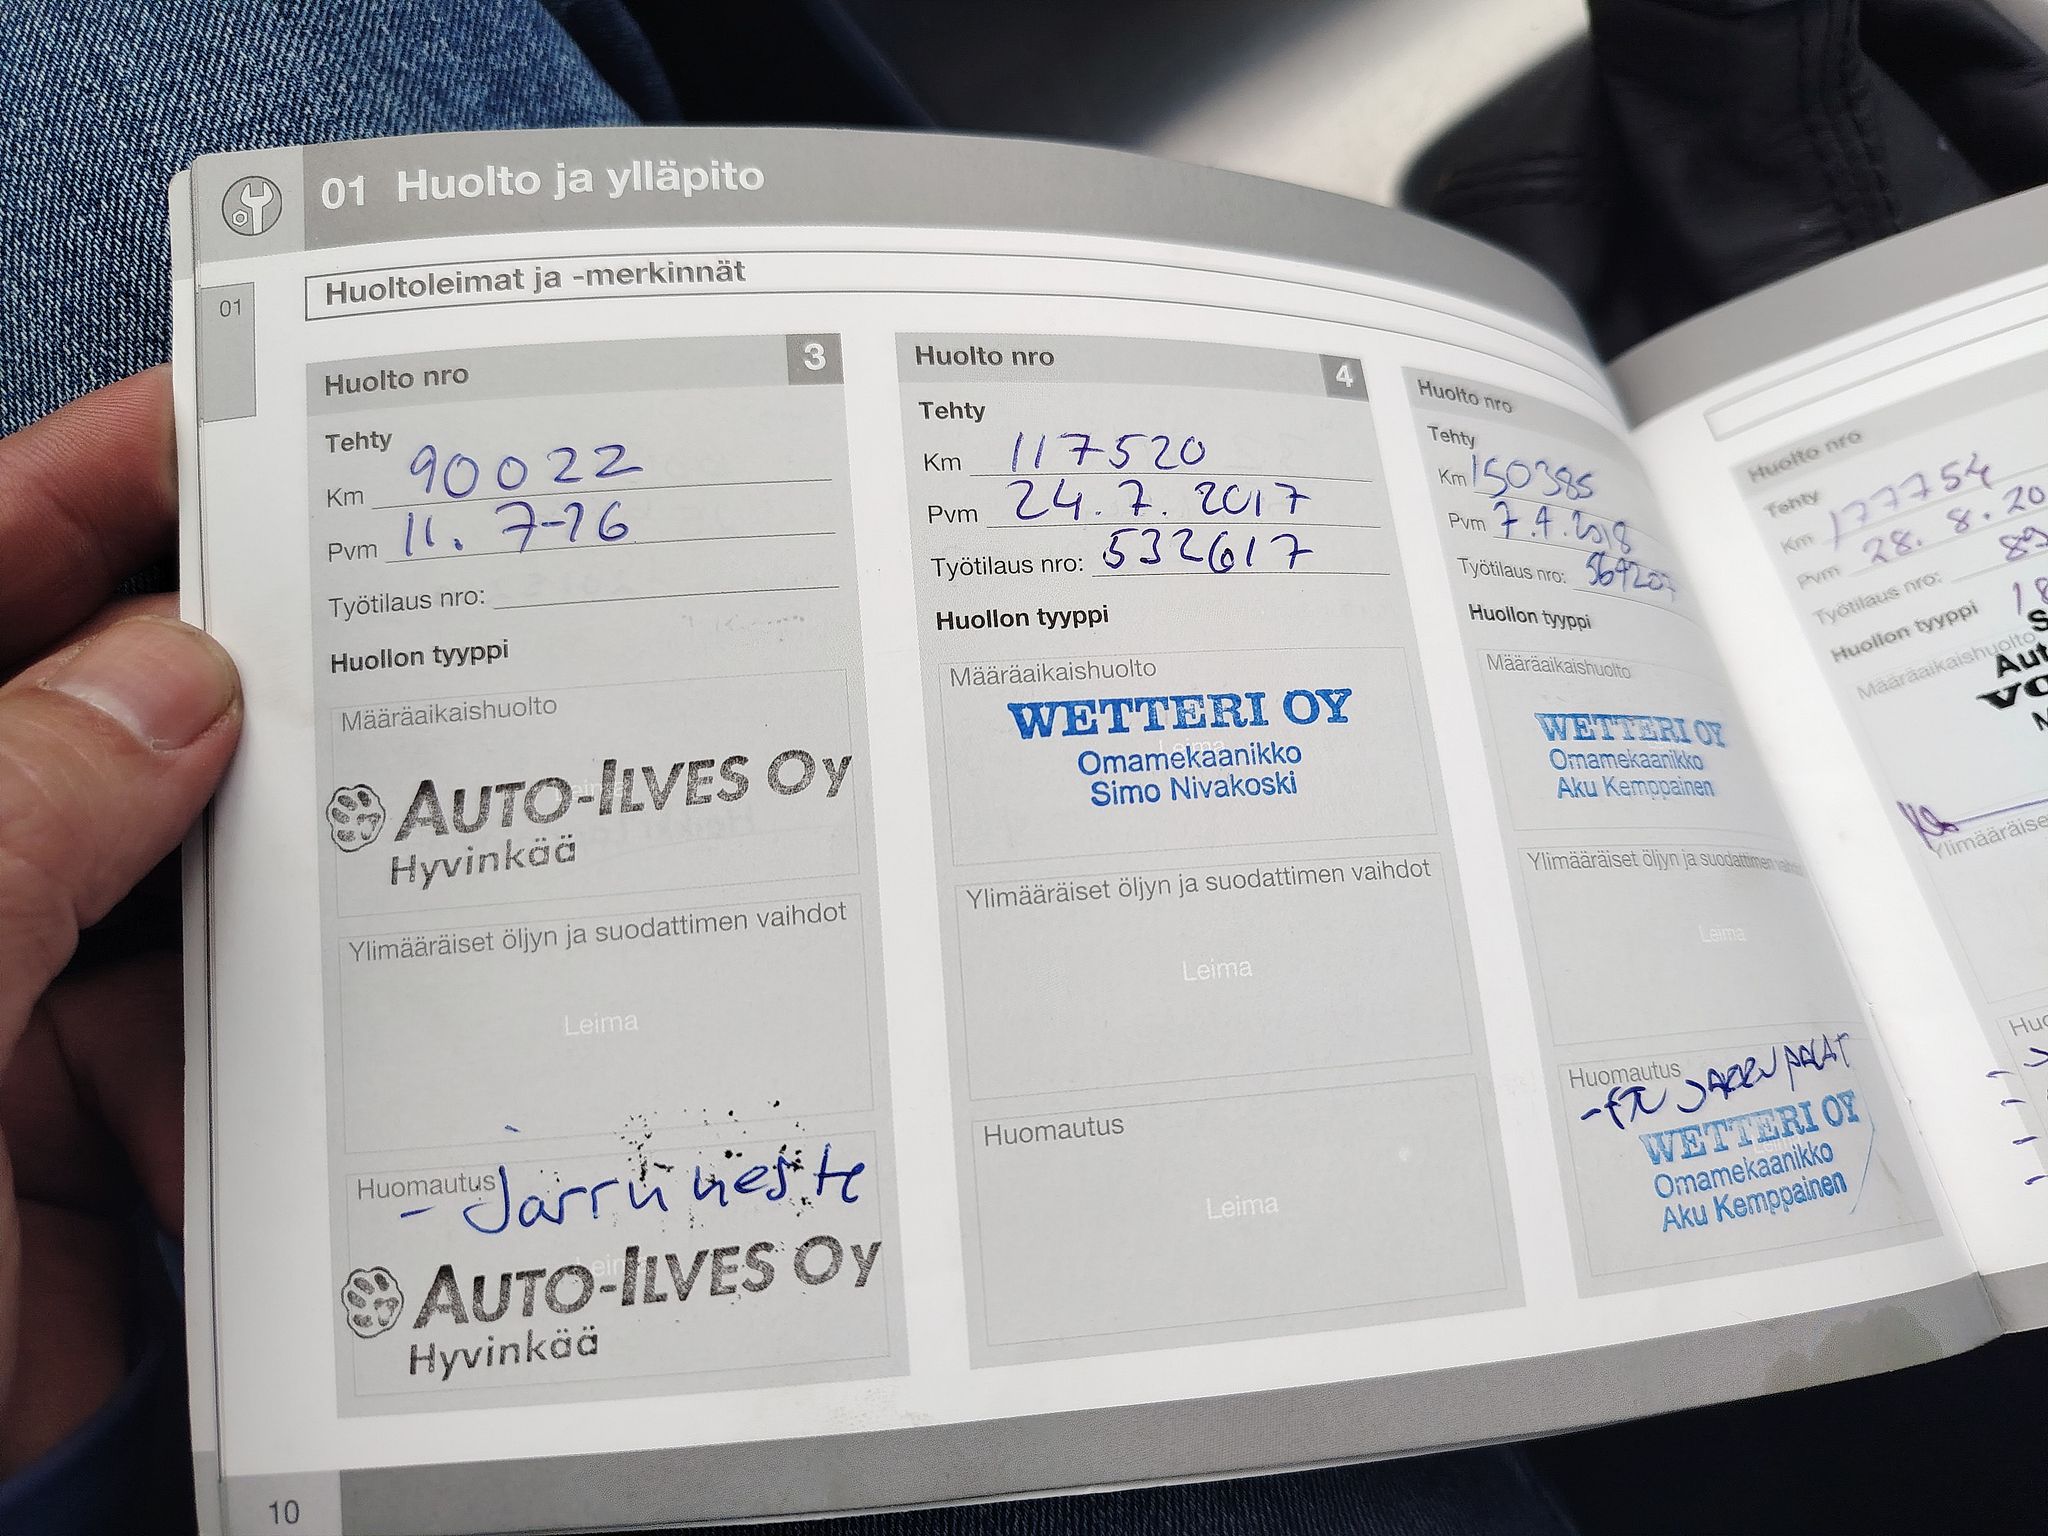 01 Huolto ja ylläpito
Huoltoleimat ja -merkinnät
01
Huolto nro 3
Tehty
Km 90022
Pvm 11. 7-16
Työtilaus nro:
Huollon tyyppi
Määräaikaishuolto
AUTO-ILVES OY
Hyvinkää
Ylimääräiset öljyn ja suodattimen vaihdot
Leima
Huomautus
- Jarruneste
AUTO-ILVES OY
Hyvinkää
Huolto nro 4
Tehty
Km 117520
Pvm 24. 7. 2017
Työtilaus nro: 532617
Huollon tyyppi
Määräaikaishuolto
WETTERI OY
Omamekaanikko
Simo Nivakoski
Ylimääräiset öljyn ja suodattimen vaihdot
Leima
Huomautus
Leima
Huolto nro
Tehty
Km 150385
Pvm 7.4.2018
Työtilaus nro: 564207
Huollon tyyppi
Määräaikaishuolto
WETTERI OY
Omamekaanikko
Aku Kemppainen
Ylimääräiset öljyn ja suodattimen vaihdot
Leima
Huomautus
JARRUPALAT
WETTERI OY
Omamekaanikko
Aku Kemppainen
10
Huolto nro
Tehty
Km 177754
Pvm 28. 8. 20
Työtilaus nro: 89
Huollon tyyppi 18
Määräaikaishuolto